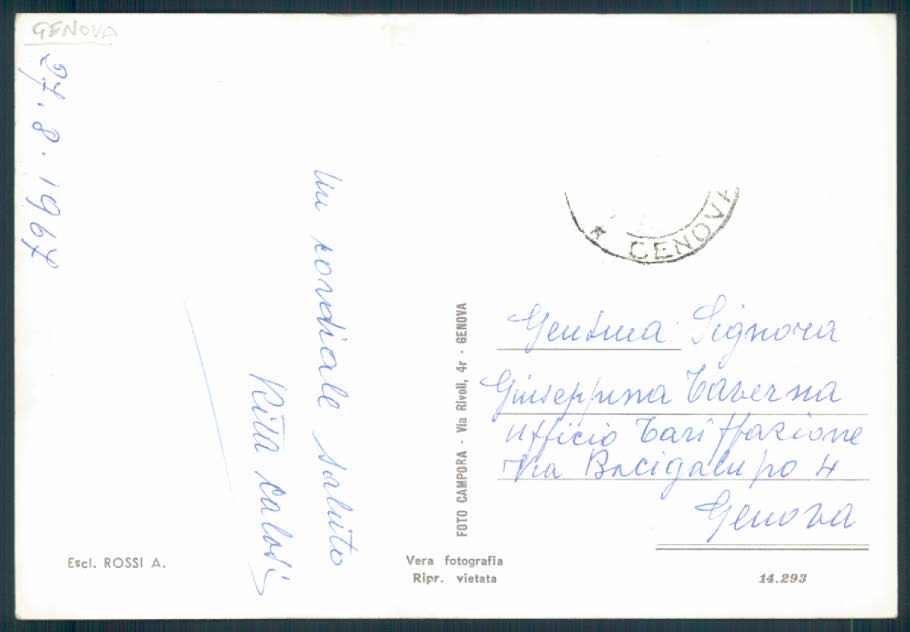 GENOVA
27.8.1967
Un cordiale saluto
Rita Calosi
GENOVA
Gent.ma Signora
Giuseppina Taverna
Ufficio Tariffazione
Via Bacigalupo 4
Genova
FOTO CAMPORA - Via Rivoli, 4r - GENOVA
Escl. ROSSI A.
Vera fotografia
Ripr. vietata
14.293